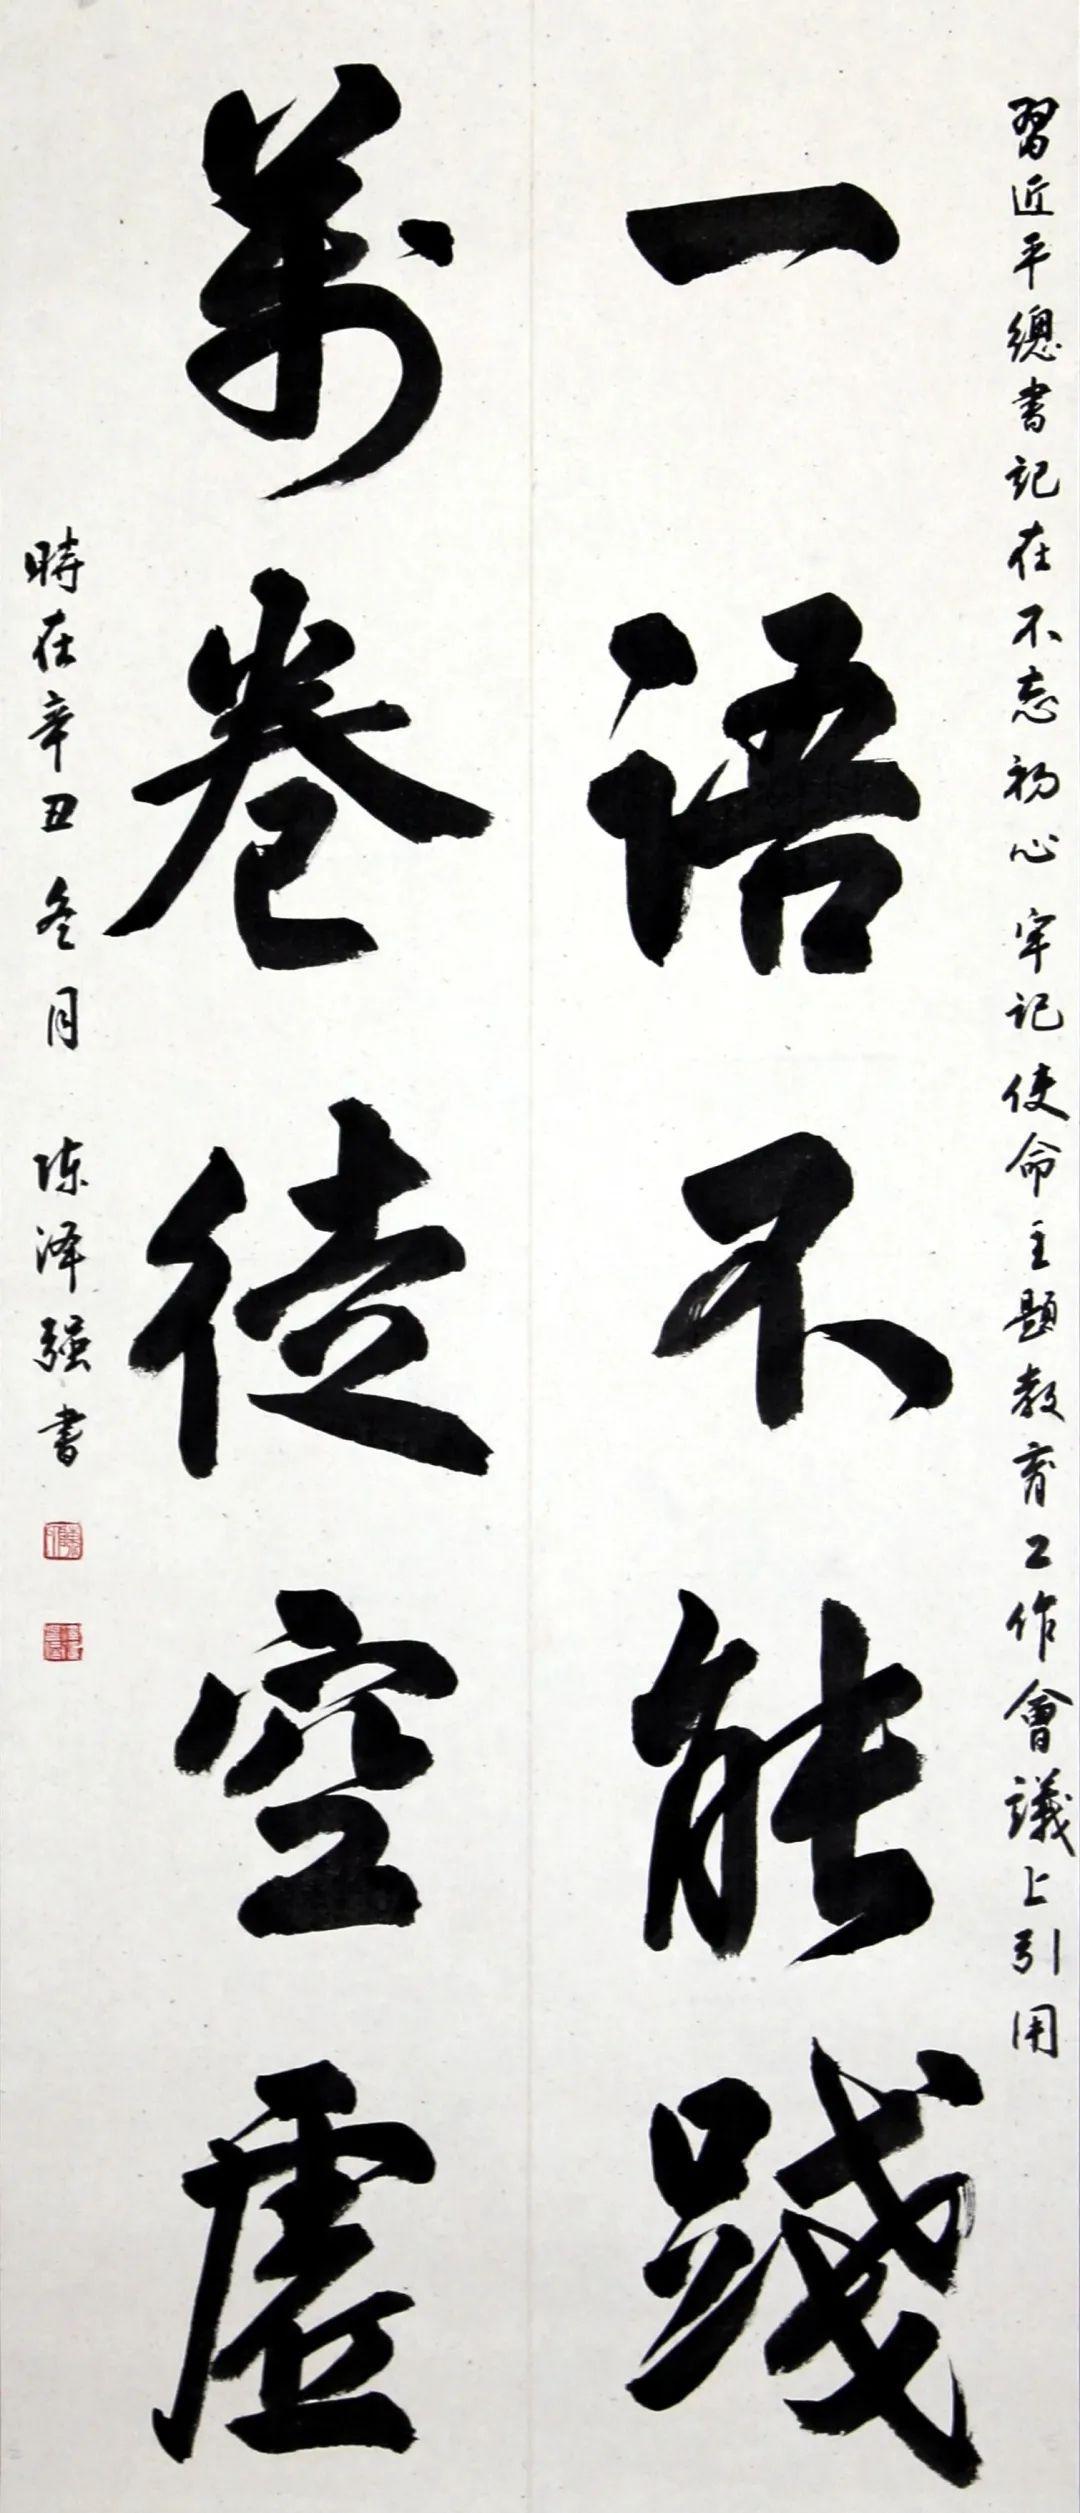 習近平總書記在不忘初心牢記使命主題教育工作會議上引用
一語不能踐
萬卷徒空虛
時在辛丑冬月 陳澤強書